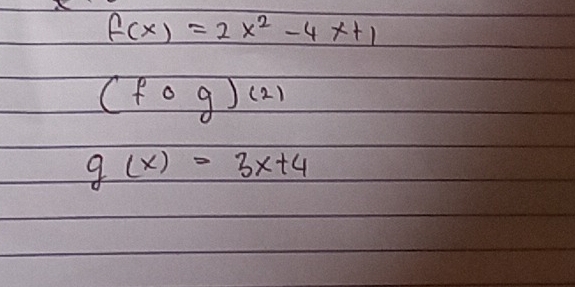 f(x) = 2x² - 4x+1
(f o g)(2)
g(x) = 3x+4